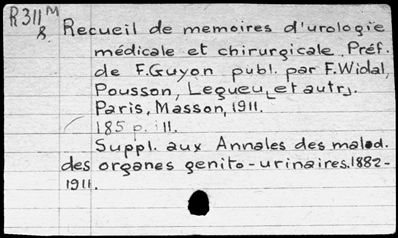 R311M
8.
Recueil de memoires d'urologie
médicale et chirurgicale. Préf.
de F.Guyon publ. par F.Widal,
Pousson, Legueu [et autr].
Paris, Masson, 1911.
185 p. ill.
Suppl. aux Annales des malad.
des organes genito-urinaires.1882-
1911.